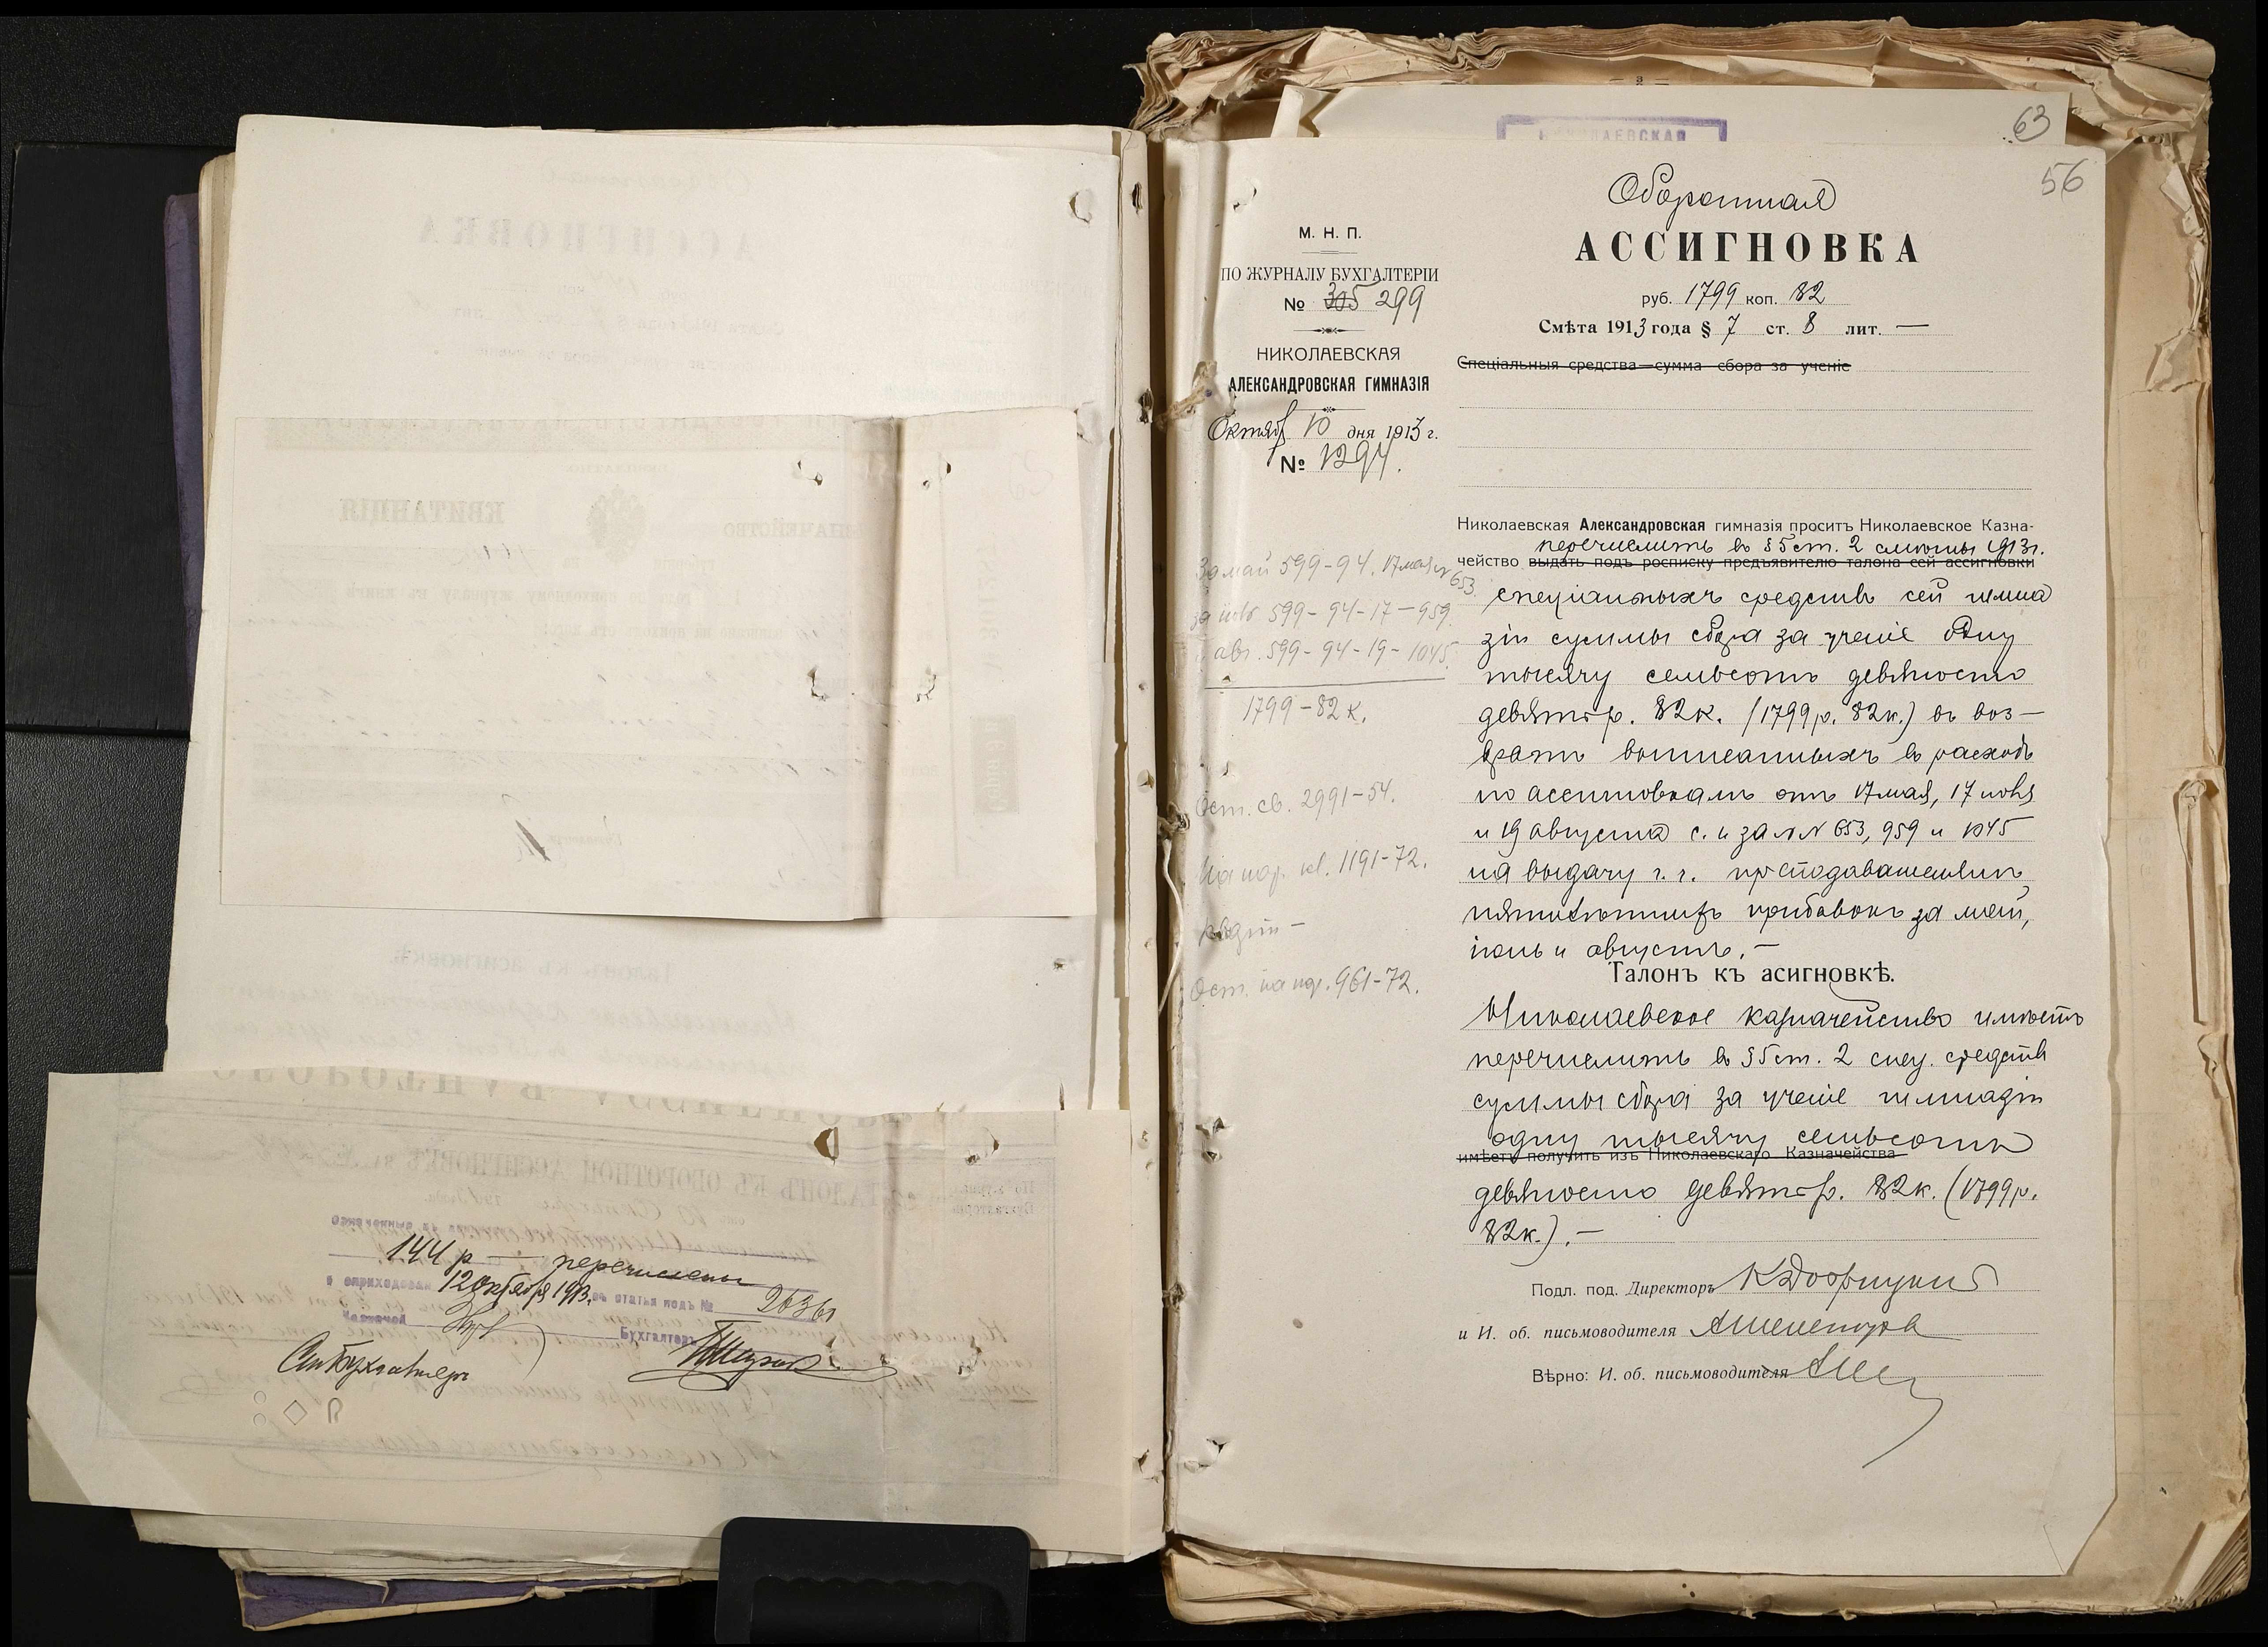 144 р — перечислены
и оприходован 12 Октября 1913, статья подъ № 26361
Казначей Бухгалтеръ
63
56
НИКОЛАЕВСКАЯ
Оборотная
АССИГНОВКА
руб. 1799 коп. 82
Смѣта 1913 года § 7 ст. 8 лит. —
Спеціальныя средства—сумма сбора за ученіе
М. Н. П.
ПО ЖУРНАЛУ БУХГАЛТЕРІИ
№ 305 299
НИКОЛАЕВСКАЯ
АЛЕКСАНДРОВСКАЯ ГИМНАЗІЯ
Октября 10 дня 1913 г.
№ 1294.
За май 599-94. 17 мая № 653.
за іюль 599-94-17-959.
авг. 599-94-19-1045.
1799-82 к.
Ост. св. 2991-54.
1191-72.
961-72.
Николаевская Александровская гимназія проситъ Николаевское Казна-
перечислить въ § 5 ст. 2 смѣты 1913 г.
чейство выдать подъ росписку предъявителю талона сей ассигновки
спеціальныхъ средствъ сей гимна
зіи суммы сбора за ученіе одну
тысячу семьсотъ девяносто
девять р. 82 к. (1799 р. 82 к.) въ воз-
вратъ выписанныхъ въ расходъ
по ассигновкамъ отъ 17 мая, 17 іюня
и 19 августа с. г. за №№ 653, 959 и 1045
на выдачу г. г. преподавателямъ
пятилѣтнихъ прибавокъ за май,
іюль и августъ. —
Талонъ къ асигновкѣ.
Николаевское казначейство имѣетъ
перечислить въ § 5 ст. 2 спец. средствъ
суммы сбора за ученіе гимназіи
одну тысячу семьсотъ
имѣетъ получить изъ Николаевскаго Казначейства
девяносто девять р. 82 к. (1799 р.
82 к.). —
Подл. под. Директоръ
и И. об. письмоводителя
Вѣрно: И. об. письмоводителя